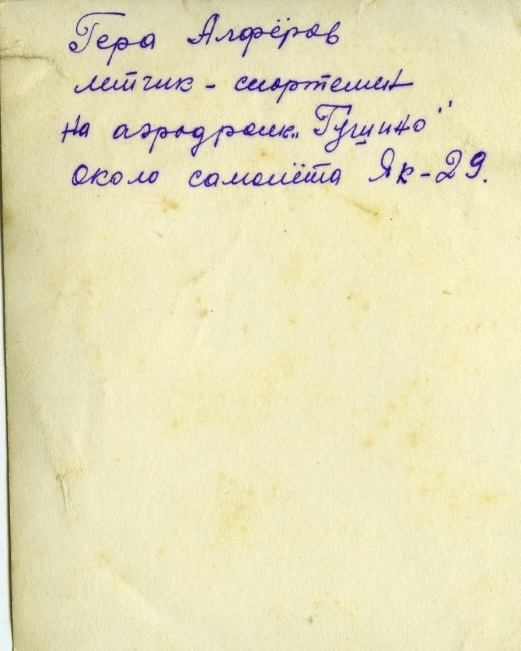 Гера Алфёров
летчик - спортсмен
на аэродроме „Тушино"
около самолёта Як-29.